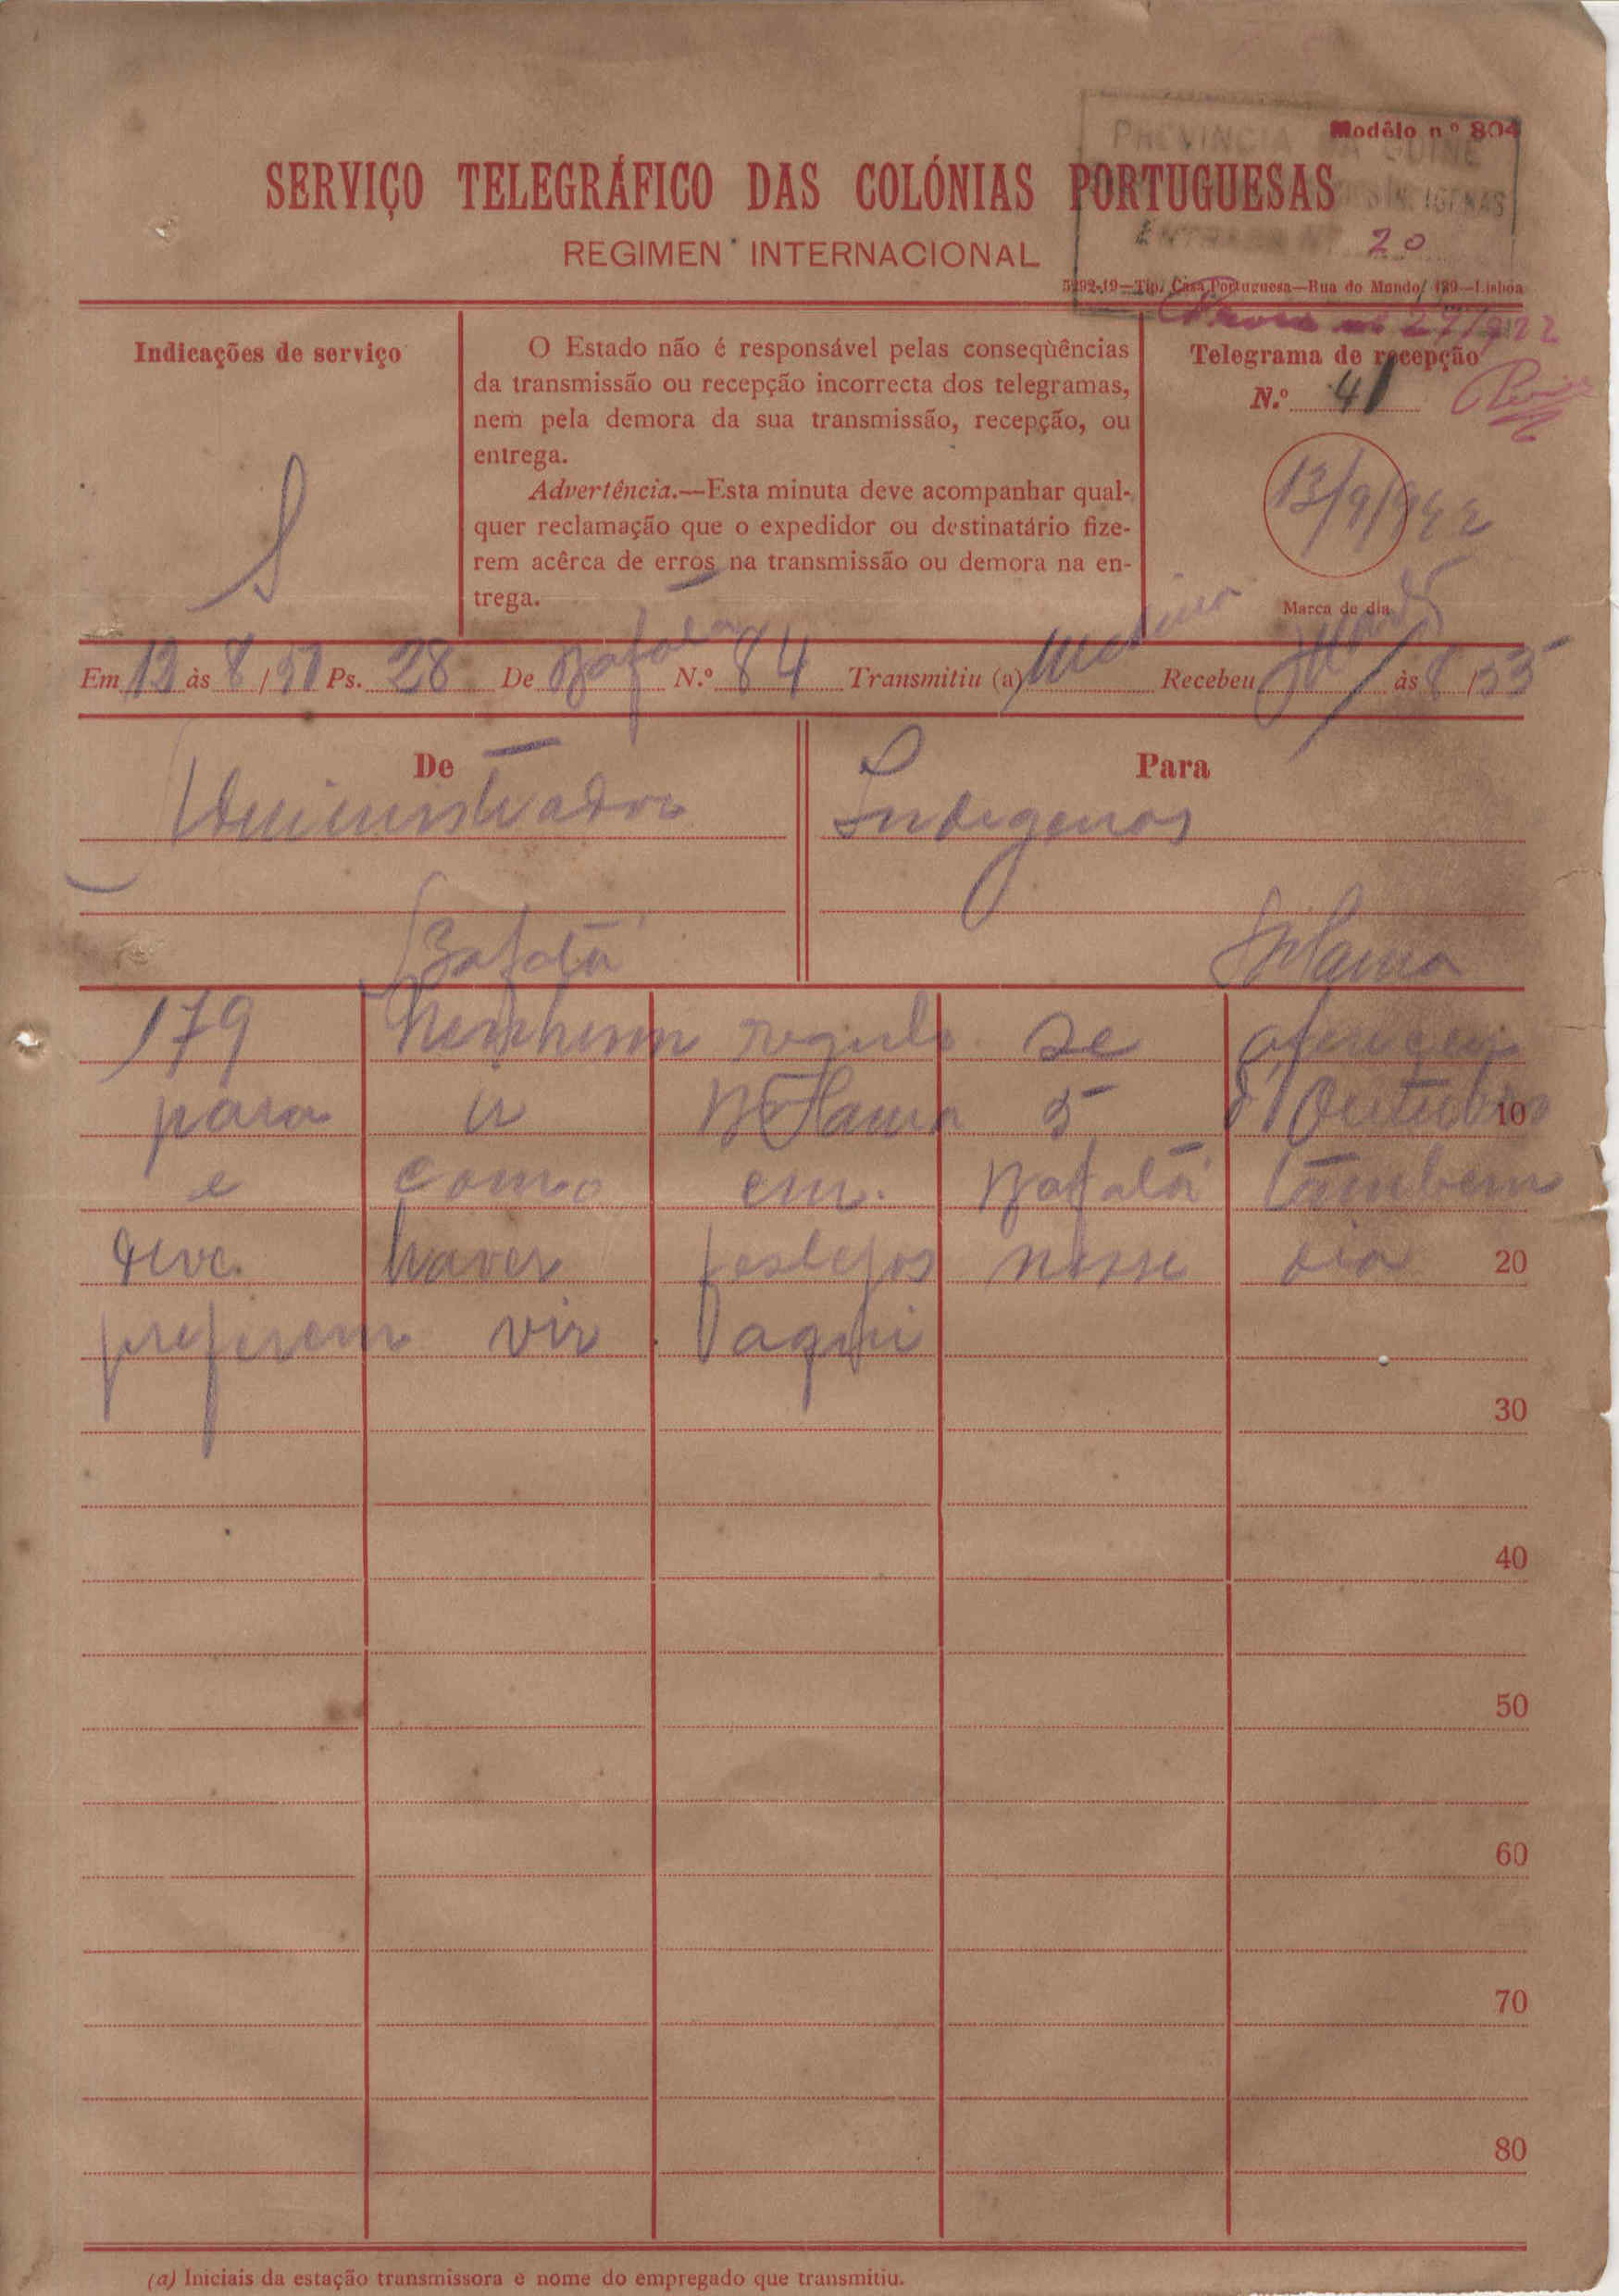 Modêlo n.º 804
PROVINCIA DA GUINÉ
INDIGENAS
ENTRADA Nº 20
SERVIÇO TELEGRÁFICO DAS COLÓNIAS PORTUGUESAS
REGIMEN INTERNACIONAL
5292-19—Tip. Casa Portuguesa—Rua do Mundo, 139—Lisboa
27/9/22
Indicações de serviço
S
O Estado não é responsável pelas conseqùências
da transmissão ou recepção incorrecta dos telegramas,
nem pela demora da sua transmissão, recepção, ou
entrega.
Advertência.—Esta minuta deve acompanhar qual-
quer reclamação que o expedidor ou destinatário fize-
rem acêrca de erros na transmissão ou demora na en-
trega.
Telegrama de recepção
N.º 41
13/9/922
Marca de dia
Em 13 às 8 / 51 Ps. 28 De Bafatá N.º 84 Transmitiu (a) Recebeu às 8 / 55
De
Administrador
Bafatá
Para
Indigenas
Bolama
179 Nenhum regulo se oferece
para ir Bolama 5 d'Outubro 10
e como em Bafatá tambem
deve haver festejos nesse dia 20
preferem vir aqui
30
40
50
60
70
80
(a) Iniciais da estação transmissora e nome do empregado que transmitiu.